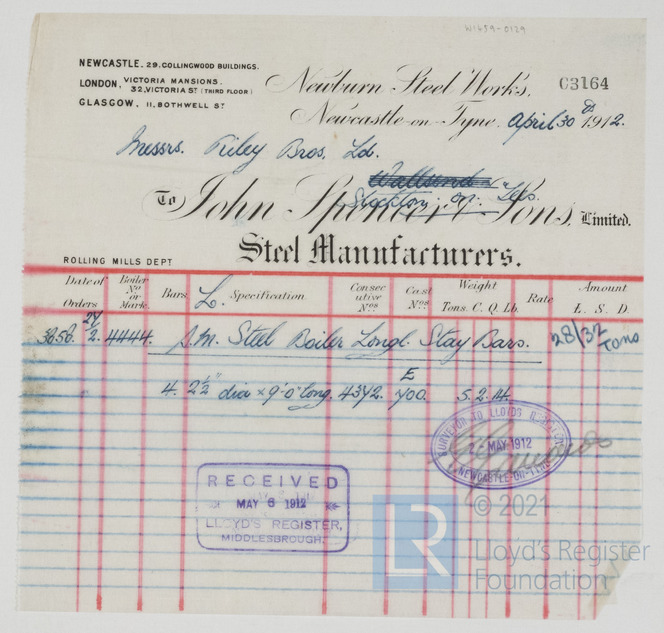 W1659-0129
NEWCASTLE. 29. COLLINGWOOD BUILDINGS.
LONDON, VICTORIA MANSIONS. 32, VICTORIA ST (THIRD FLOOR)
GLASGOW, 11, BOTHWELL ST
Newburn Steel Works, C3164
Newcastle-on-Tyne, April 30th 1912.
Messrs. Riley Bros. Ld.
Wallsend
Stockton on Tees.
To John Spencer & Sons, Limited.
Steel Manufacturers.
ROLLING MILLS DEPT
Date of Orders Boiler No or Mark. Bars L. Specification Consecutive Nos Cast Nos. Weight Tons. C. Q. Lb. Rate Amount L. S. D.
3656. 27/2. 4444. S.M. Steel Boiler Longl. Stay Bars. 28/32 Tons
4. 2½" dia × 9'-0" long. 4342. E 400. 5. 2. 14.
SURVEYOR TO LLOYDS REGISTER
MAY 1912
NEWCASTLE-ON-TYNE
RECEIVED
MAY 6 1912
LLOYD'S REGISTER,
MIDDLESBROUGH.
© 2021
LR
Lloyd's Register
Foundation